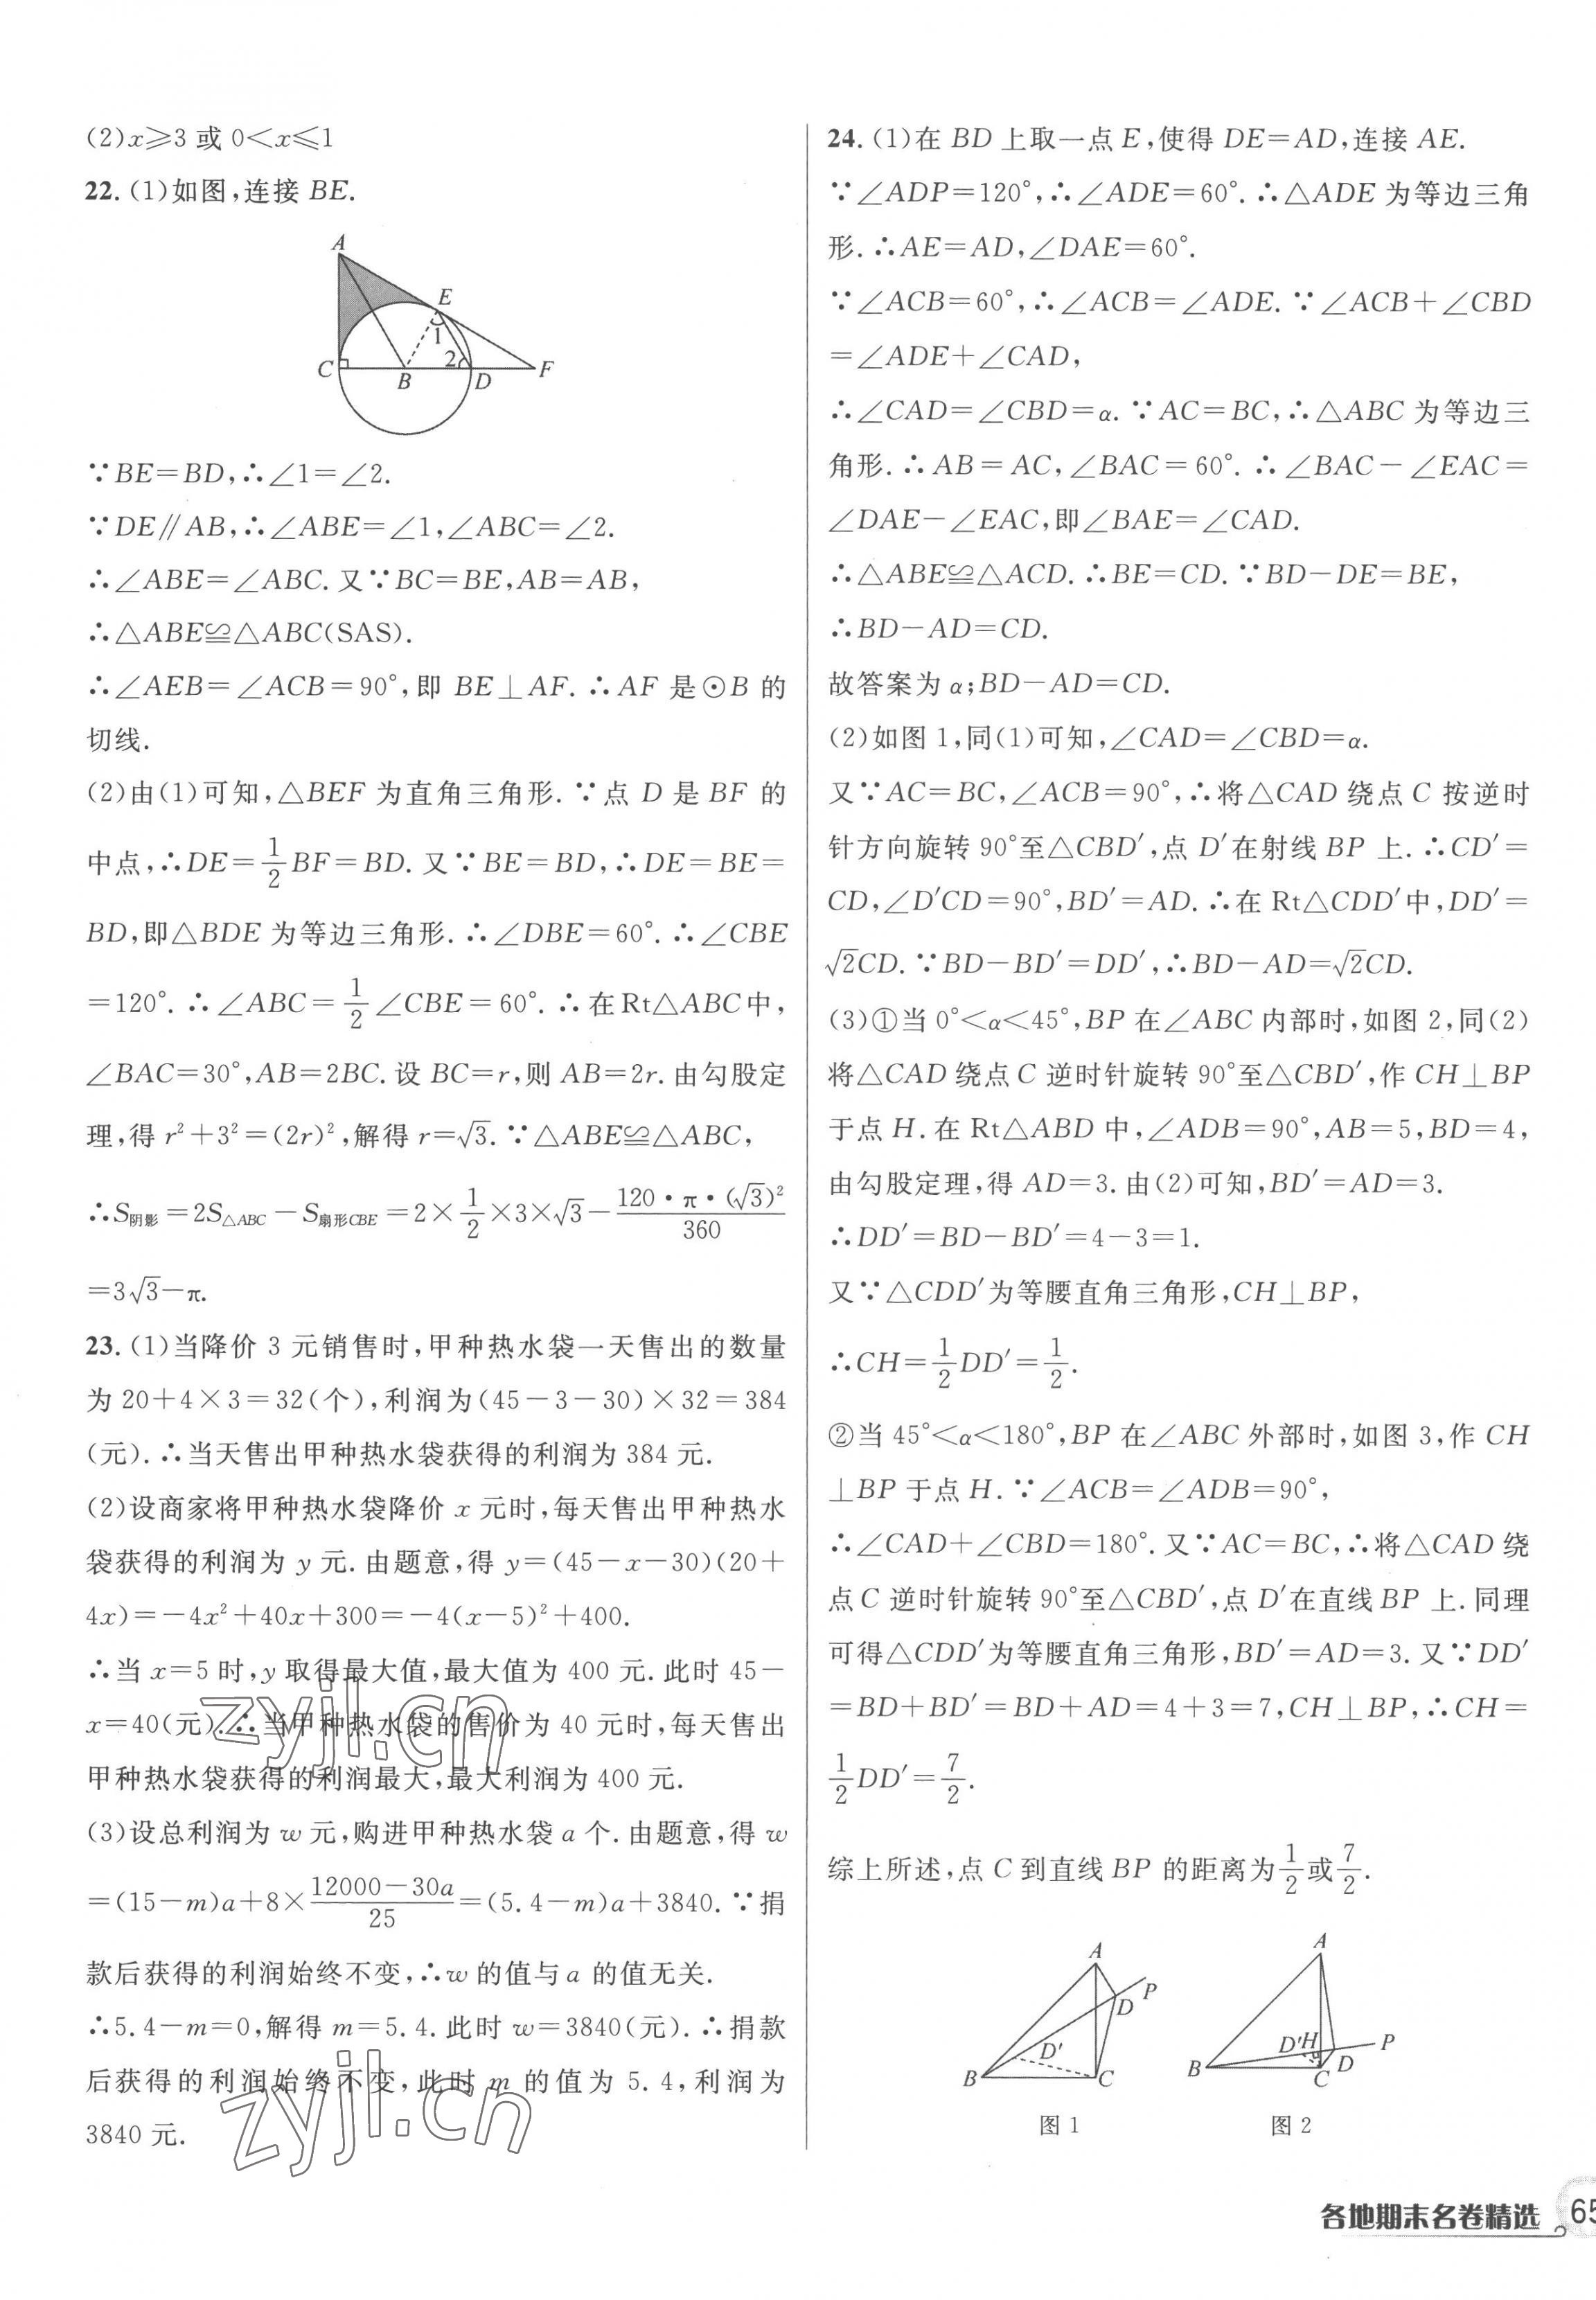 (2)x≥3 或 0<x≤1
22. (1)如图,连接 BE.
A
E
1
2
C
B
D
F
∵BE=BD,∴∠1=∠2.
∵DE∥AB,∴∠ABE=∠1,∠ABC=∠2.
∴∠ABE=∠ABC. 又∵BC=BE,AB=AB,
∴△ABE≌△ABC(SAS).
∴∠AEB=∠ACB=90°,即 BE⊥AF. ∴AF 是⊙B 的
切线.
(2)由(1)可知,△BEF 为直角三角形. ∵点 D 是 BF 的
中点,∴DE=1/2BF=BD. 又∵BE=BD,∴DE=BE=
BD,即△BDE 为等边三角形. ∴∠DBE=60°. ∴∠CBE
=120°. ∴∠ABC=1/2∠CBE=60°. ∴在 Rt△ABC 中,
∠BAC=30°,AB=2BC. 设 BC=r,则 AB=2r. 由勾股定
理,得 r²+3²=(2r)²,解得 r=√3. ∵△ABE≌△ABC,
∴S阴影=2S△ABC-S扇形CBE=2×1/2×3×√3-120·π·(√3)²/360
=3√3-π.
23. (1)当降价 3 元销售时,甲种热水袋一天售出的数量
为 20+4×3=32(个),利润为(45-3-30)×32=384
(元). ∴当天售出甲种热水袋获得的利润为 384 元.
(2)设商家将甲种热水袋降价 x 元时,每天售出甲种热水
袋获得的利润为 y 元. 由题意,得 y=(45-x-30)(20+
4x)=-4x²+40x+300=-4(x-5)²+400.
∴当 x=5 时,y 取得最大值,最大值为 400 元. 此时 45-
x=40(元). ∴当甲种热水袋的售价为 40 元时,每天售出
甲种热水袋获得的利润最大,最大利润为 400 元.
(3)设总利润为 w 元,购进甲种热水袋 a 个. 由题意,得 w
=(15-m)a+8×(12000-30a)/25=(5.4-m)a+3840. ∵捐
款后获得的利润始终不变,∴w 的值与 a 的值无关.
∴5.4-m=0,解得 m=5.4. 此时 w=3840(元). ∴捐款
后获得的利润始终不变,此时 m 的值为 5.4,利润为
3840 元.
zyjl.cn
zyjl.cn
24. (1)在 BD 上取一点 E,使得 DE=AD,连接 AE.
∵∠ADP=120°,∴∠ADE=60°. ∴△ADE 为等边三角
形. ∴AE=AD,∠DAE=60°.
∵∠ACB=60°,∴∠ACB=∠ADE. ∵∠ACB+∠CBD
=∠ADE+∠CAD,
∴∠CAD=∠CBD=α. ∵AC=BC,∴△ABC 为等边三
角形. ∴AB=AC,∠BAC=60°. ∴∠BAC-∠EAC=
∠DAE-∠EAC,即∠BAE=∠CAD.
∴△ABE≌△ACD. ∴BE=CD. ∵BD-DE=BE,
∴BD-AD=CD.
故答案为 α;BD-AD=CD.
(2)如图 1,同(1)可知,∠CAD=∠CBD=α.
又∵AC=BC,∠ACB=90°,∴将△CAD 绕点 C 按逆时
针方向旋转 90°至△CBD′,点 D′在射线 BP 上. ∴CD′=
CD,∠D′CD=90°,BD′=AD. ∴在 Rt△CDD′中,DD′=
√2CD. ∵BD-BD′=DD′,∴BD-AD=√2CD.
(3)①当 0°<α<45°,BP 在∠ABC 内部时,如图 2,同(2)
将△CAD 绕点 C 逆时针旋转 90°至△CBD′,作 CH⊥BP
于点 H. 在 Rt△ABD 中,∠ADB=90°,AB=5,BD=4,
由勾股定理,得 AD=3. 由(2)可知,BD′=AD=3.
∴DD′=BD-BD′=4-3=1.
又∵△CDD′为等腰直角三角形,CH⊥BP,
∴CH=1/2DD′=1/2.
②当 45°<α<180°,BP 在∠ABC 外部时,如图 3,作 CH
⊥BP 于点 H. ∵∠ACB=∠ADB=90°,
∴∠CAD+∠CBD=180°. 又∵AC=BC,∴将△CAD 绕
点 C 逆时针旋转 90°至△CBD′,点 D′在直线 BP 上. 同理
可得△CDD′为等腰直角三角形,BD′=AD=3. 又∵DD′
=BD+BD′=BD+AD=4+3=7,CH⊥BP,∴CH=
1/2DD′=7/2.
综上所述,点 C 到直线 BP 的距离为1/2或7/2.
A
P
D
D′
B
C
图 1
A
D′
H
P
B
C
D
图 2
各地期末名卷精选
65